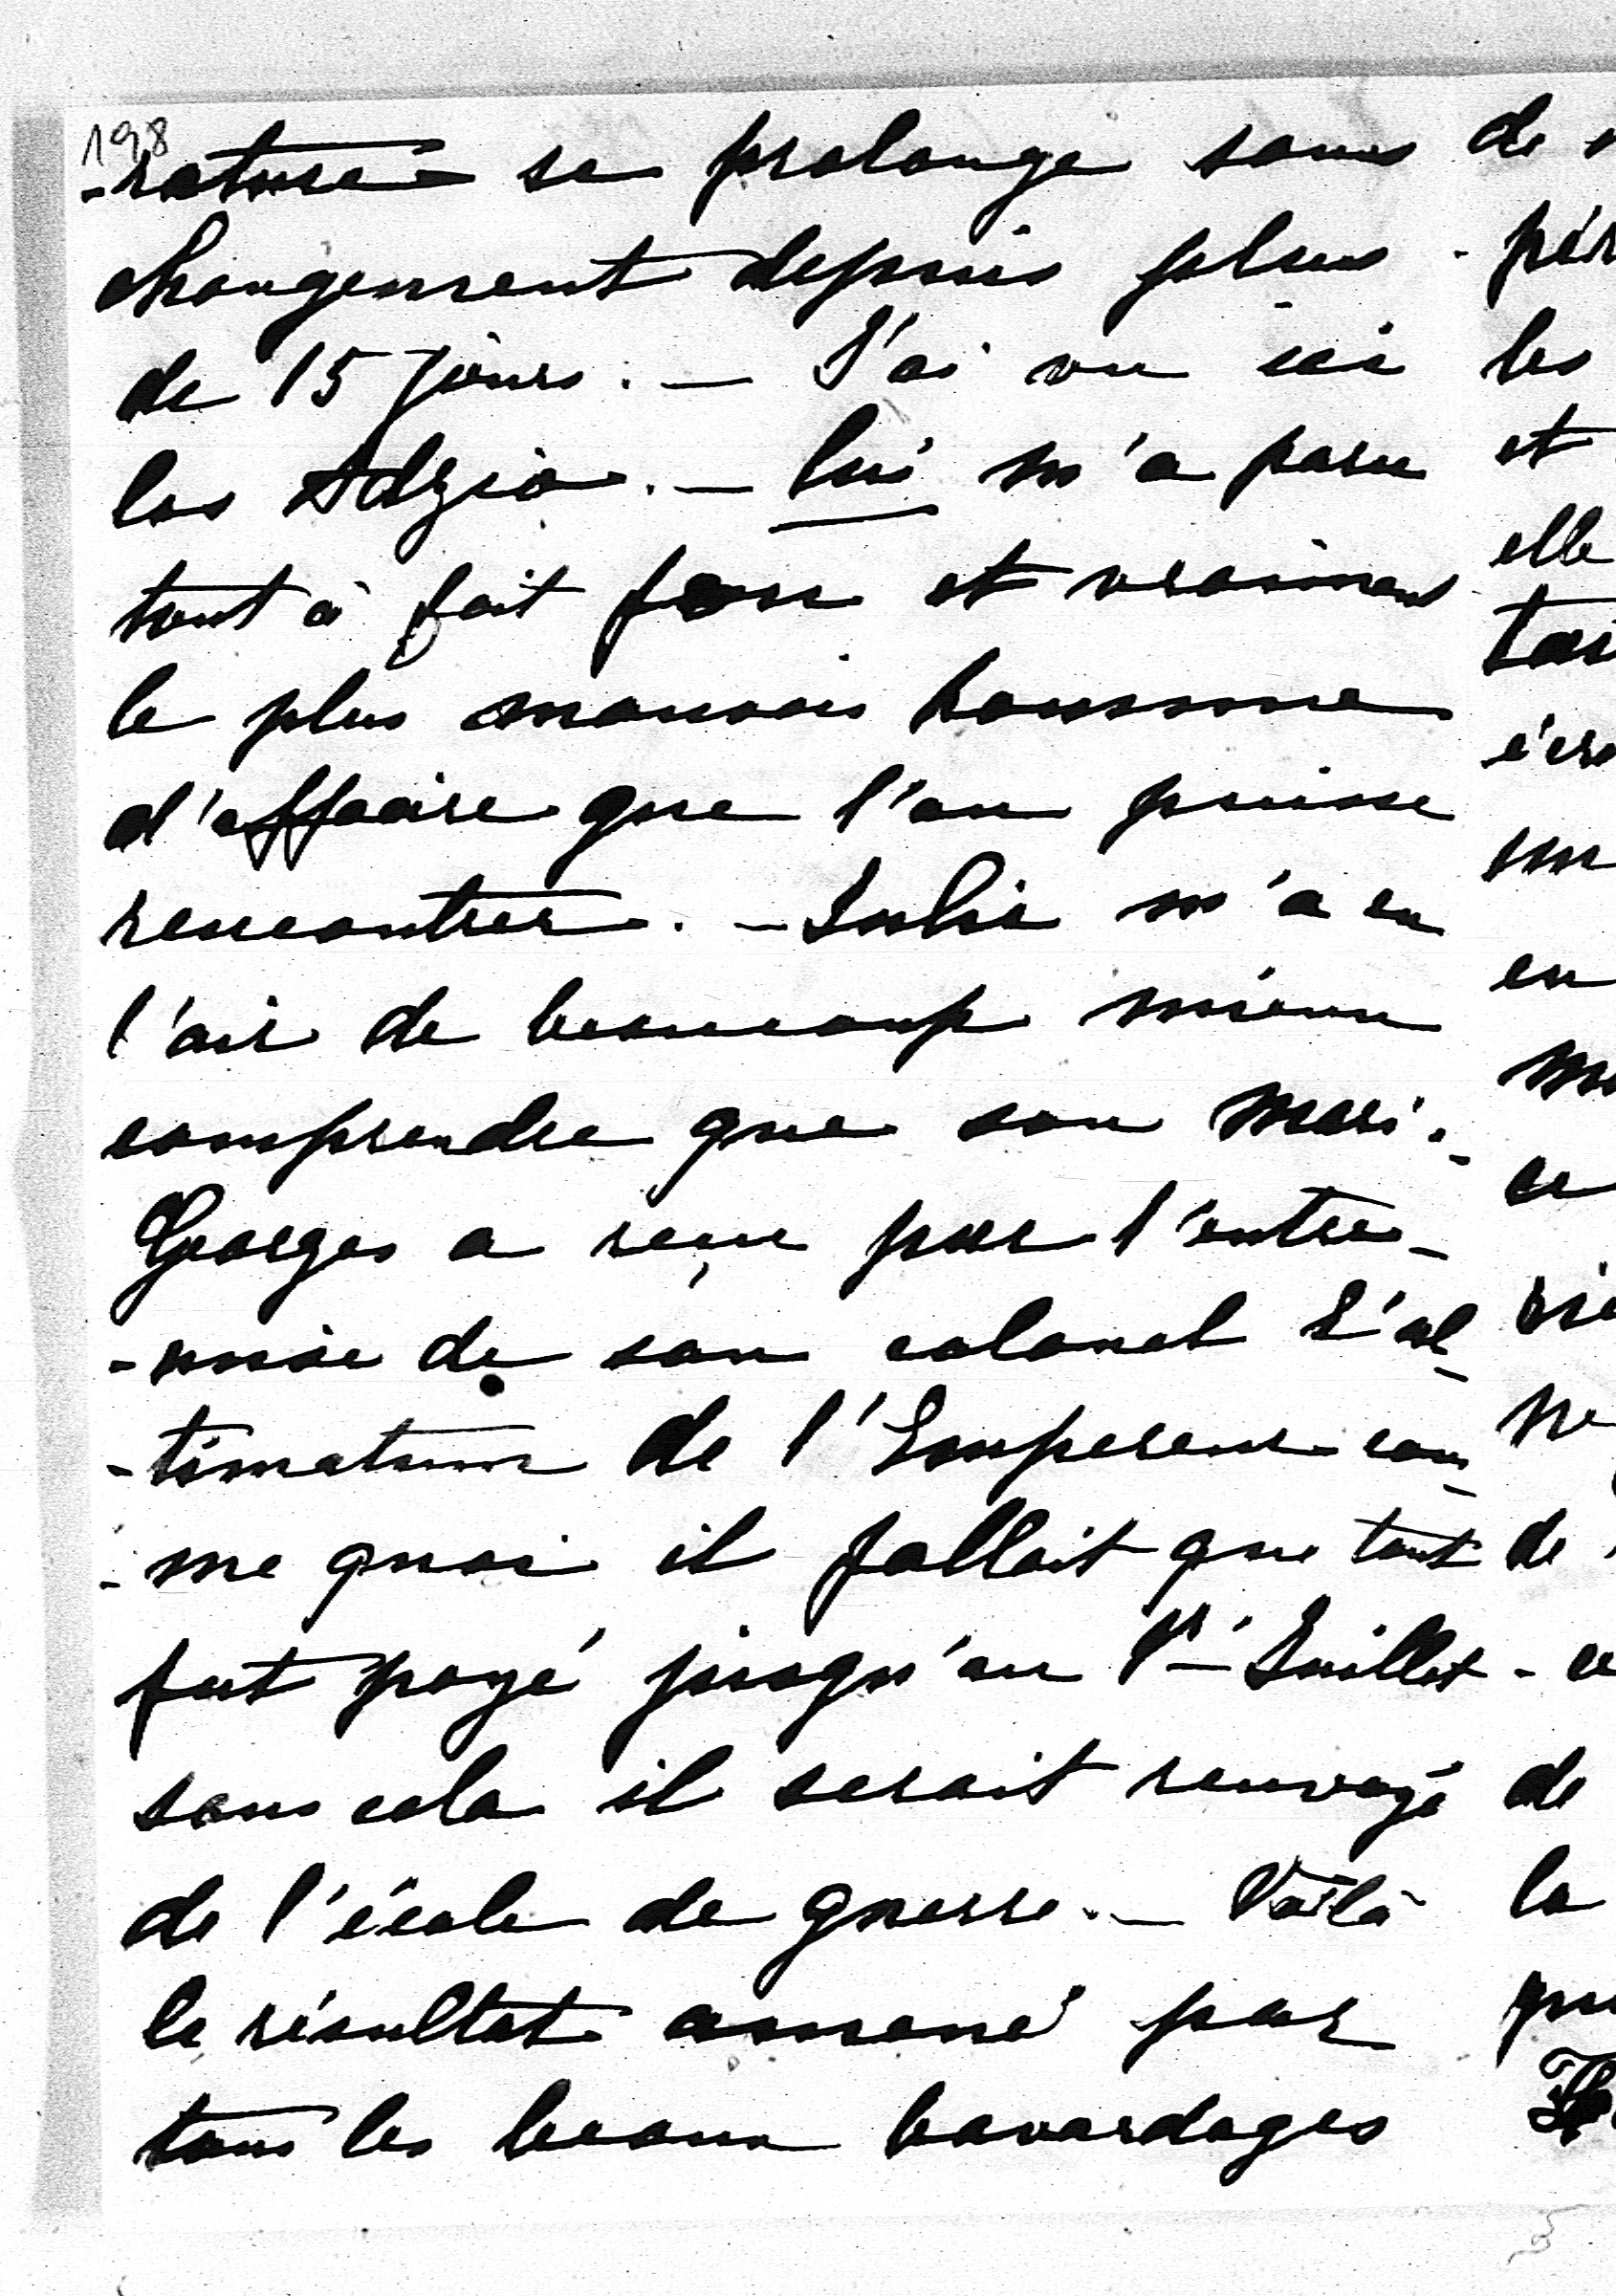 198
-rature se prolonge sans
changement depuis plus
de 15 jours. — J'ai vu ici
les Adzio. — lui m'a paru
tout à fait fou et vraiment
le plus mauvais homme
d'affaire que l'on puisse
rencontrer. — Julie m'a eu
l'air de beaucoup mieux
comprendre que son mari. -
Georges a reçu par l'entre-
-mise de son colonel l'ul-
-timatum de l'Empereur com-
-me quoi il fallait que tout
fut payé jusqu'au 1er Juillet -
sans cela il serait renvoyé
de l'école de guerre. — Voilà
le résultat amené par
tous les beaux bavardages
de
pér
les
et
elle
en
ce
ne
de
de
la